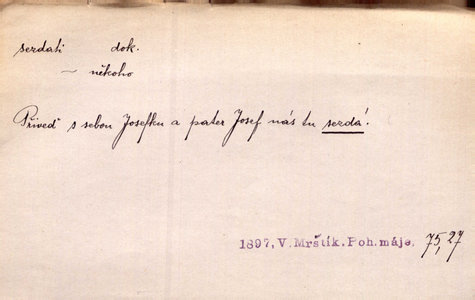 sezdati dok.
~ někoho
Přiveď s sebou Josefku a pater Josef nás tu sezdá!
1897, V. Mrštík. Poh. máje, 75, 27